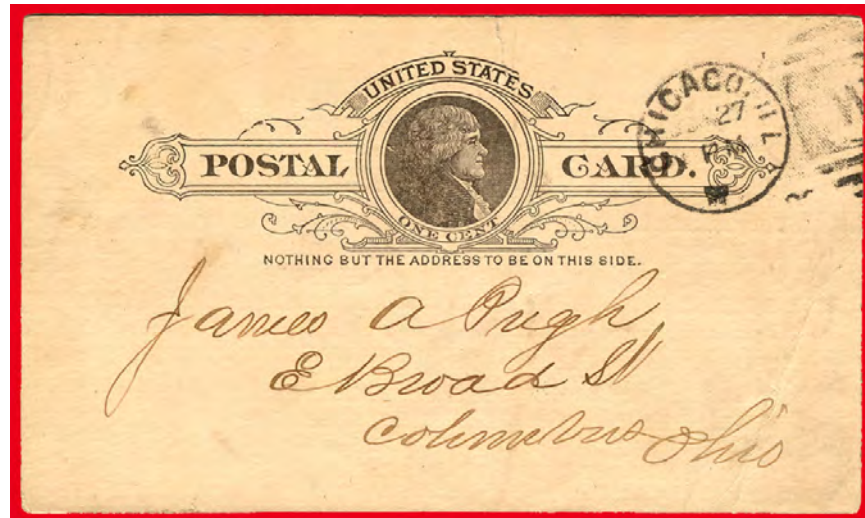 UNITED STATES
POSTAL CARD.
ONE CENT
NOTHING BUT THE ADDRESS TO BE ON THIS SIDE.
CHICAGO, ILL.
27
PM
James A Pugh
E Broad St
Columbus Ohio